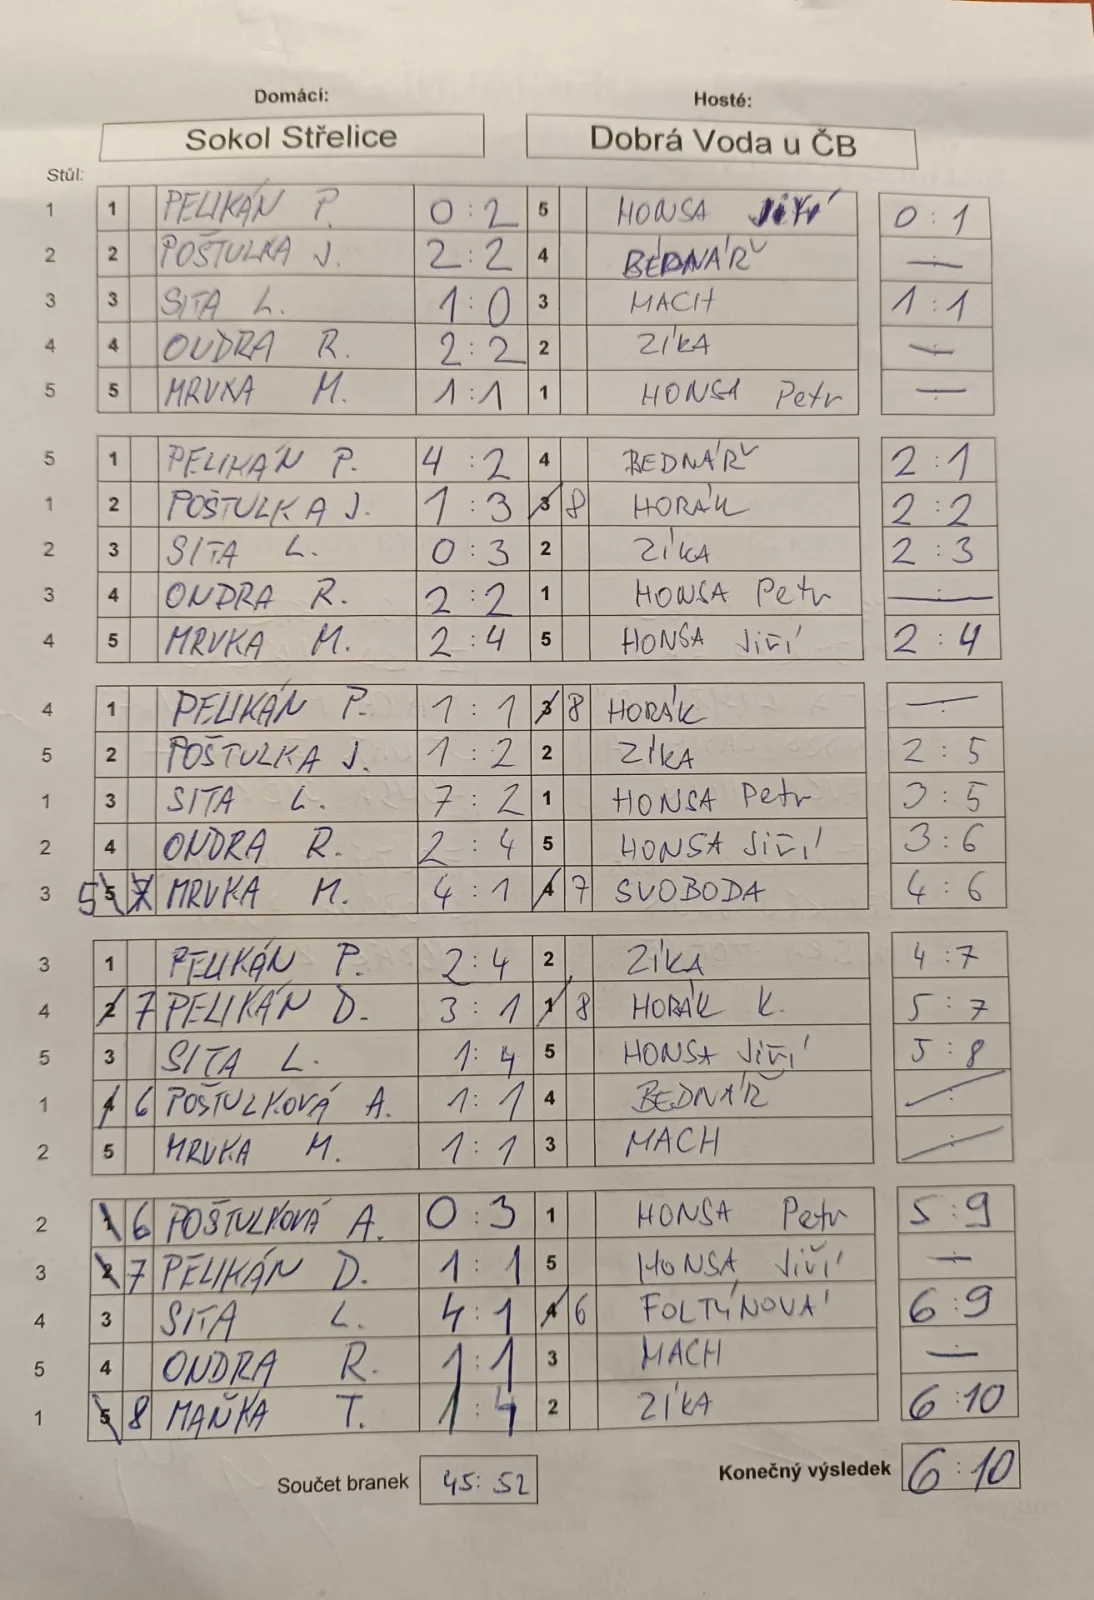 Domácí: Hosté:
Sokol Střelice Dobrá Voda u ČB
Stůl:
1 1 PELIKÁN P. 0:2 5 HONSA Jiří 0:1
2 2 POŠTULKA J. 2:2 4 BEDNÁŘ —
3 3 SITA L. 1:0 3 MACH 1:1
4 4 ONDRA R. 2:2 2 ZÍKA —
5 5 MRVKA M. 1:1 1 HONSA Petr —
5 1 PELIKÁN P. 4:2 4 BEDNÁŘ 2:1
1 2 POŠTULKA J. 1:3 3 8 HORÁK 2:2
2 3 SITA L. 0:3 2 ZÍKA 2:3
3 4 ONDRA R. 2:2 1 HONSA Petr —
4 5 MRVKA M. 2:4 5 HONSA Jiří 2:4
4 1 PELIKÁN P. 1:1 3 8 HORÁK —
5 2 POŠTULKA J. 1:2 2 ZÍKA 2:5
1 3 SITA L. 7:2 1 HONSA Petr 3:5
2 4 ONDRA R. 2:4 5 HONSA Jiří 3:6
3 5 5 7 MRVKA M. 4:1 4 7 SVOBODA 4:6
3 1 PELIKÁN P. 2:4 2 ZÍKA 4:7
4 2 7 PELIKÁN D. 3:1 1 8 HORÁK K. 5:7
5 3 SITA L. 1:4 5 HONSA Jiří 5:8
1 4 6 POŠTULKOVÁ A. 1:1 4 BEDNÁŘ —
2 5 MRVKA M. 1:1 3 MACH —
2 1 6 POŠTULKOVÁ A. 0:3 1 HONSA Petr 5:9
3 2 7 PELIKÁN D. 1:1 5 HONSA Jiří —
4 3 SITA L. 4:1 4 6 FOLTÝNOVÁ 6:9
5 4 ONDRA R. 1:1 3 MACH —
1 5 8 MAŇKA T. 1:4 2 ZÍKA 6:10
Součet branek 45:52 Konečný výsledek 6:10